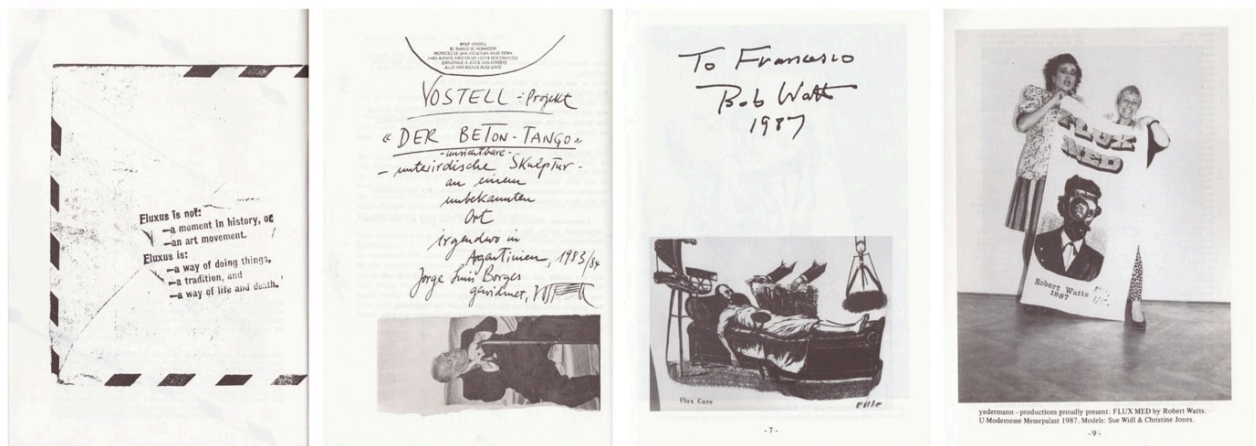 Fluxus is not:
—a moment in history, or
—an art movement.
Fluxus is:
—a way of doing things,
—a tradition, and
—a way of life and death.
WOLF VOSTELL
VOSTELL-Projekt
«DER BETON-TANGO»
-unsichtbare-
-unterirdische Skulptur-
an einem
unbekannten
Ort
irgendwo in
Argentinien, 1983/84
Jorge Luis Borges
gewidmet,
To Francesco
Bob Watts
1987
Flux Cure
-7-
FLUX
MED
Robert Watts
1987
yedermann - productions proudly present: FLUX MED by Robert Watts.
U-Modemesse Messepalast 1987. Models: Sue Widl & Christine Jones.
-9-